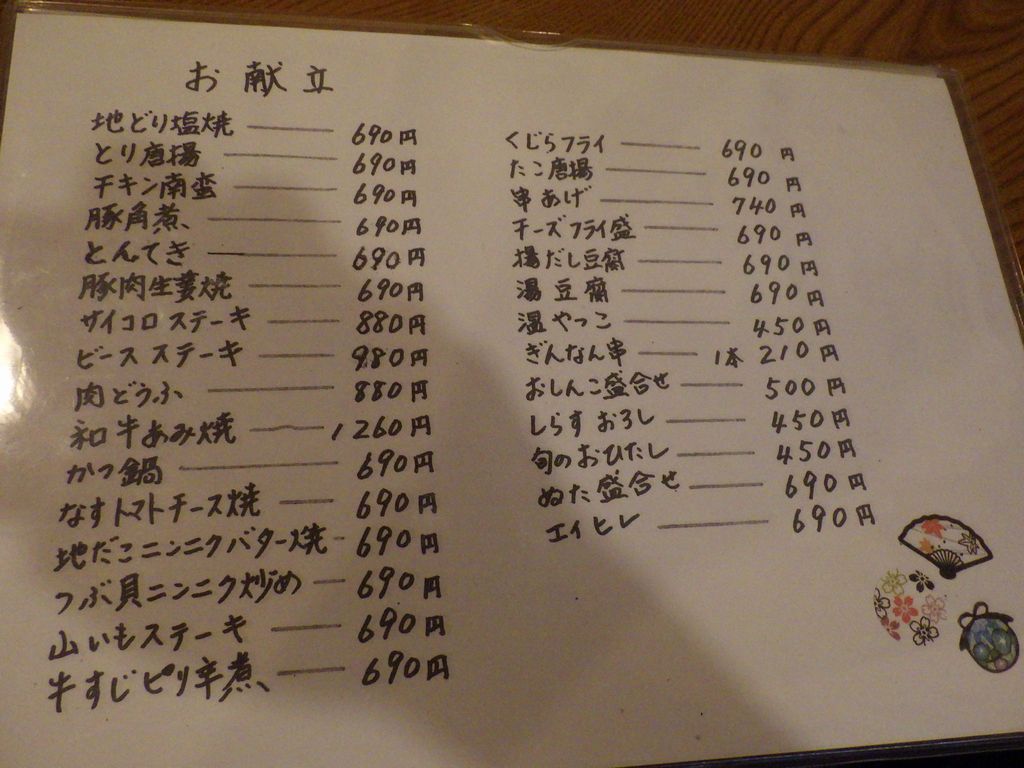 お献立
地どり塩焼 690円
とり唐揚 690円
チキン南蛮 690円
豚角煮 690円
とんてき 690円
豚肉生姜焼 690円
サイコロステーキ 880円
ビースステーキ 980円
肉どうふ 880円
和牛あみ焼 1260円
かつ鍋 690円
なすトマトチーズ焼 690円
地だこニンニクバター焼 690円
つぶ貝ニンニク炒め 690円
山いもステーキ 690円
牛すじピリ辛煮 690円
くじらフライ 690円
たこ唐揚 690円
串あげ 740円
チーズフライ盛 690円
揚だし豆腐 690円
湯豆腐 690円
温やっこ 450円
ぎんなん串 1本 210円
おしんこ盛合せ 500円
しらすおろし 450円
旬のおひたし 450円
ぬた盛合せ 690円
エイヒレ 690円